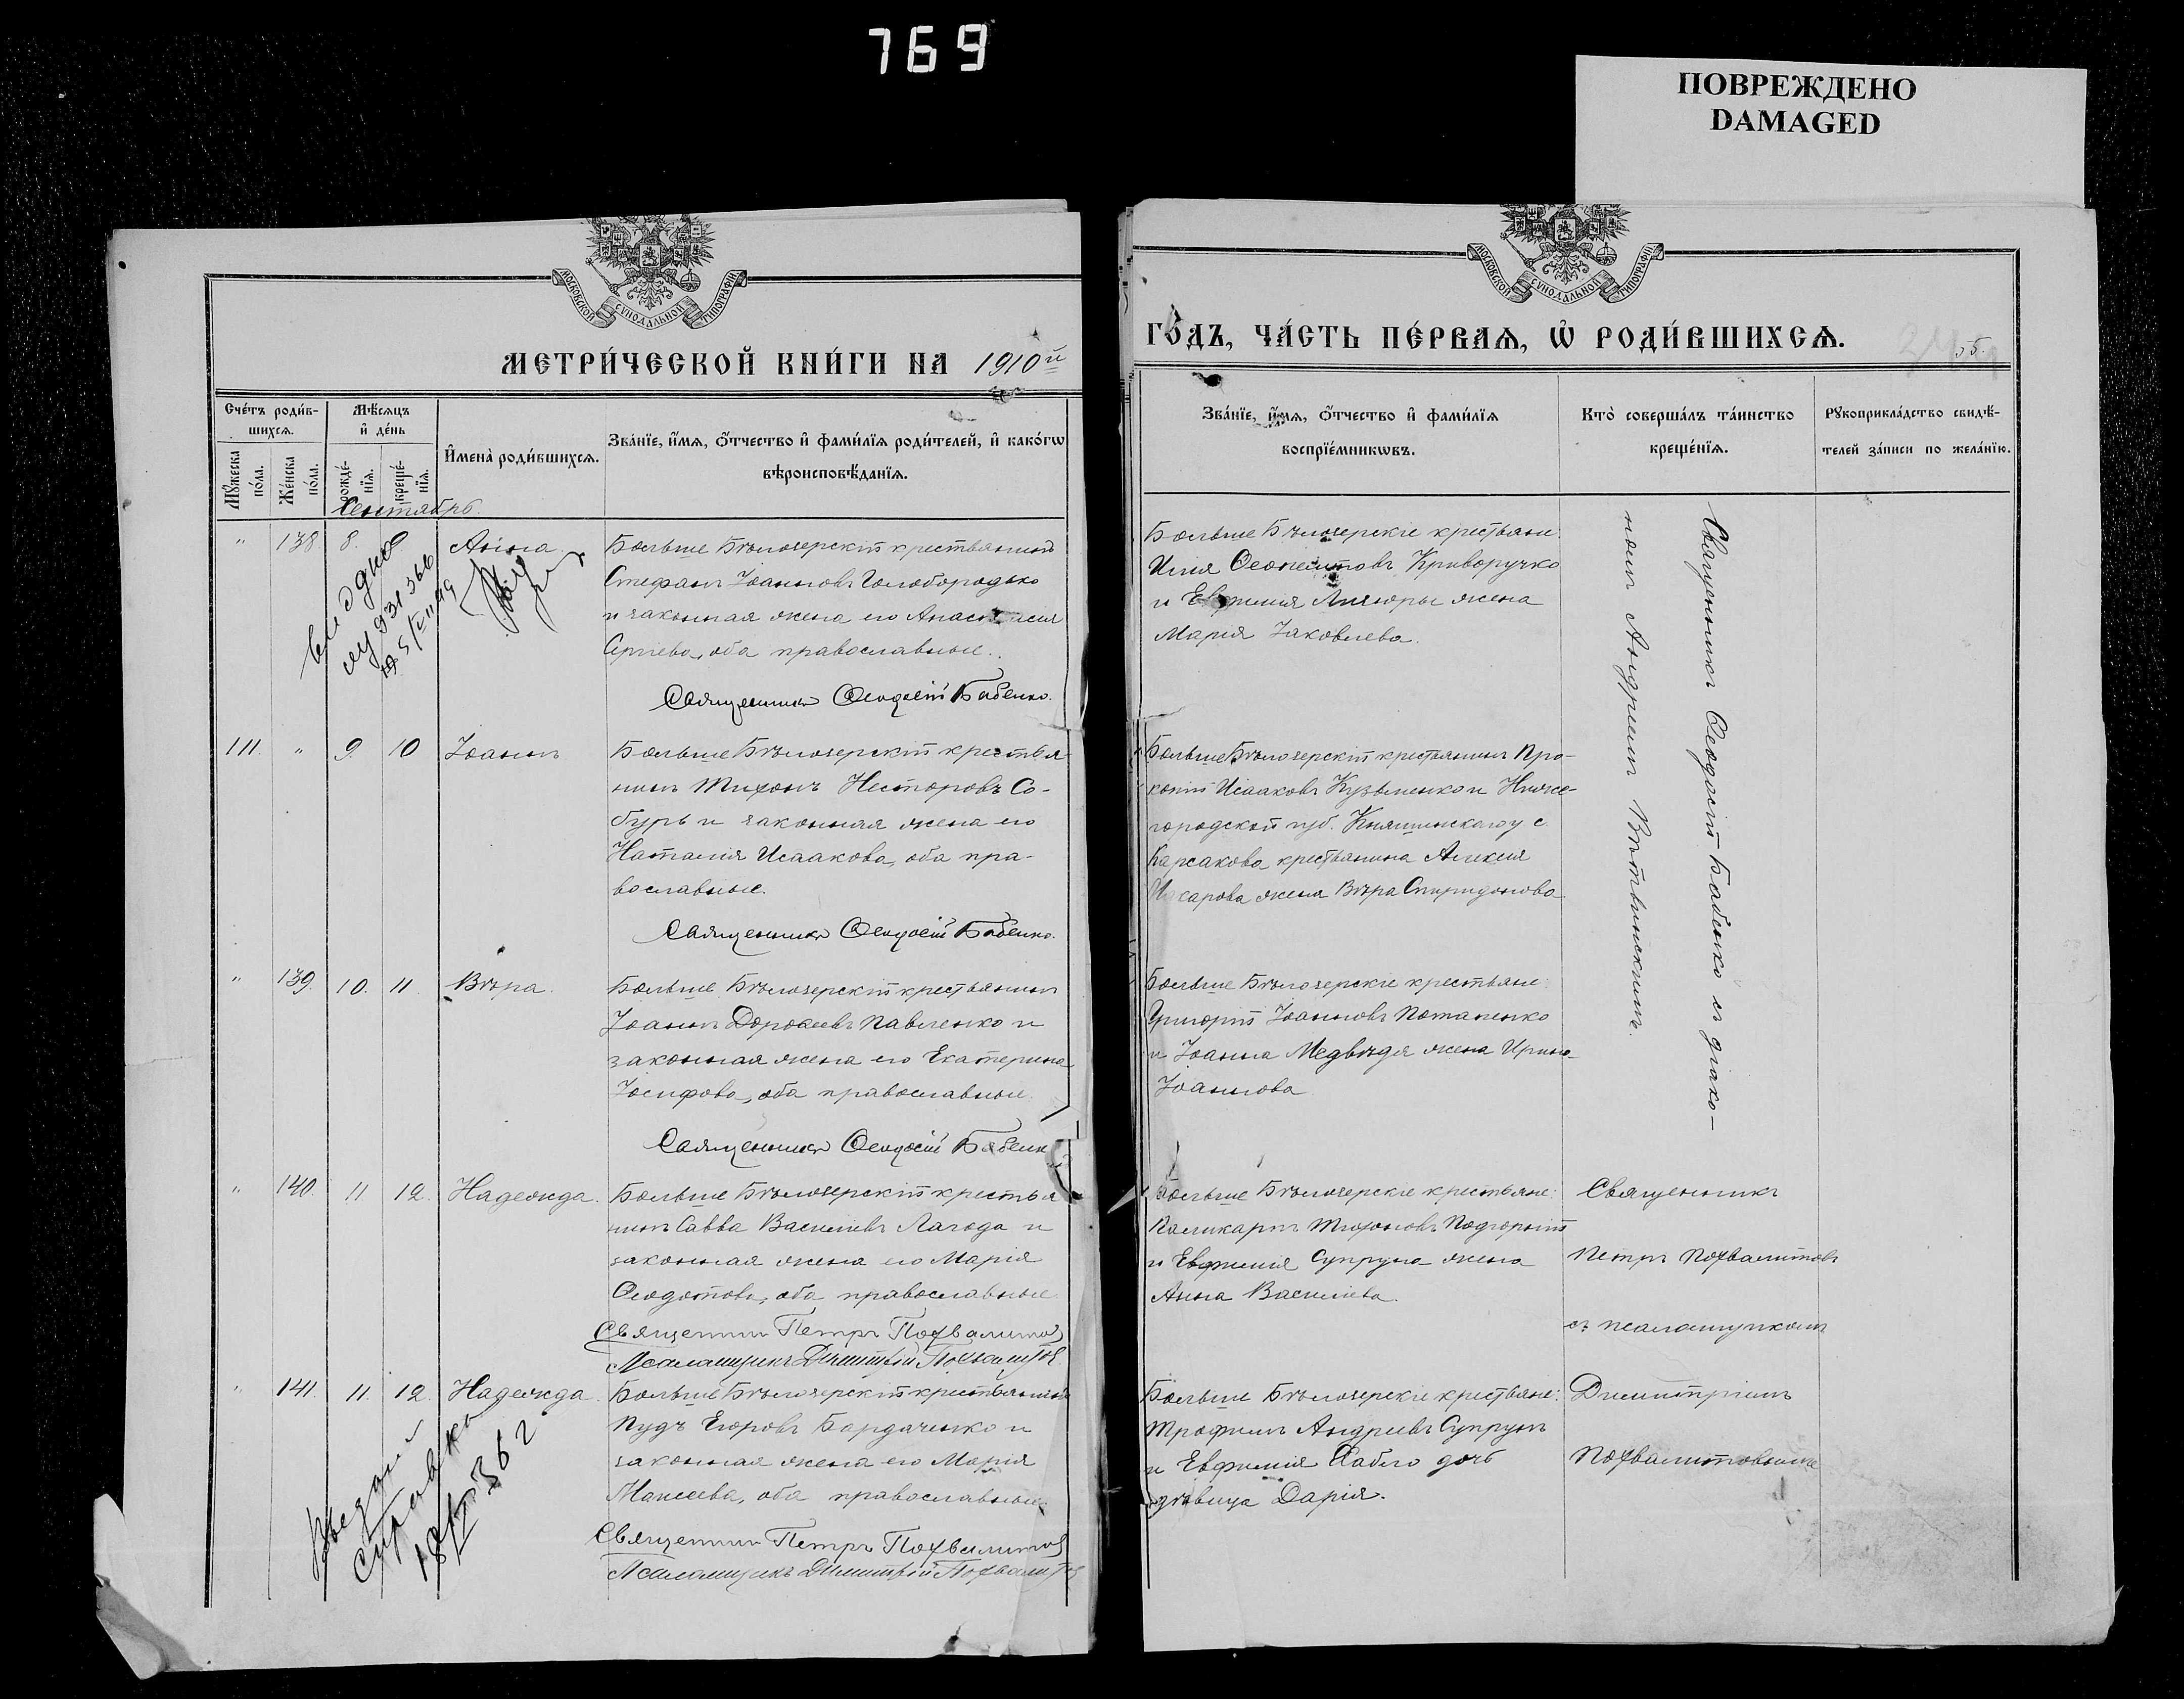 769
ПОВРЕЖДЕНО
DAMAGED
МОСКОВСКОЙ СѴНОДАЛЬНОЙ ТИПОГРАФІИ
МЕТРИ́ЧЕСКОЙ КНИ́ГИ НА 1910й
Сче́тъ роди́в-
шихсѧ.
Мꙋ́жеска
по́ла.
Же́нска
по́ла.
Мѣ́сѧцъ
и҆ де́нь
рожде́-
нїѧ.
креще́-
нїѧ.
И҆мена̀ роди́вшихсѧ.
Зва́нїе, и҆́мѧ, ѻ҆́тчество и҆ фами́лїѧ роди́телей, и҆ како́гѡ
вѣроисповѣ́данїѧ.
Сентябрь.
" 138 8. 8 Анна
Больше Бѣлозерскій крестьянинъ
Стефанъ Іоанновъ Голобородько
и законная жена его Анастасія
Сергіева, оба православные.
Священникъ Ѳеодосій Бабенко.
111. " 9. 10 Іоаннъ
Больше Бѣлозерскій крестья
нинъ Тихонъ Несторовъ Со-
буръ и законная жена его
Наталія Исаакова, оба пра-
вославные.
Священникъ Ѳеодосій Бабенко.
" 139. 10. 11. Вѣра.
Больше Бѣлозерскій крестьянинъ
Іоаннъ Дороѳеевъ Павленко и
законная жена его Екатерина
Іосифова, оба православные.
Священникъ Ѳеодосій Бабенк
" 140. 11 12. Надежда.
Больше Бѣлозерскій крестья
нинъ Савва Василіевъ Лагода и
законная жена его Марія
Ѳеодотова, оба православные.
Священникъ Петръ Похвалитов
Псаломщикъ Димитрій Похвалитов
" 141. 11. 12. Надежда.
Больше Бѣлозерскій крестьянинъ
Пудъ Егоровъ Бардаченко и
законная жена его Марія
Моисеева, оба православные
Священникъ Петръ Похвалитов
Псаломщикъ Димитрій Похвалитов
Выдано
справка
МОСКОВСКОЙ СѴНОДАЛЬНОЙ ТИПОГРАФІИ
ГО́ДЪ, ЧА́СТЬ ПЕ́РВАѦ, Ѡ҆ РОДИ́ВШИХСѦ.
Зва́нїе, и҆́мѧ, ѻ҆́тчество и҆ фами́лїѧ
воспрїе́мникѡвъ.
Кто̀ соверша́лъ та́инство
креще́нїѧ.
Рꙋкоприкла́дство свидѣ́-
телей за́писи по жела́нїю.
Больше Бѣлозерскіе крестьяне:
Илія Ѳеоктистовъ Криворучко
и Евфимія жена
Марія Іаковлева.
Больше Бѣлозерскій крестьянинъ Про-
копій Исааковъ Кузьменко и Ниже-
городской губ. Княгинскаго у с.
Барсакова крестьянина Алексія
Макарова жена Вѣра Спиридонова
Больше Бѣлозерскіе крестьяне:
Григорій Іоанновъ Потапенко
и Іоанна Медвѣдя жена Ирина
Іоаннова
Больше Бѣлозерскіе крестьяне:
Поликарпъ Тихоновъ Подгорній
и Евфимія Супруна жена
Анна Василіева.
Больше Бѣлозерскіе крестьяне:
Трофимъ Андреевъ Супрунъ
и Евфимія дочь
дѣвица Дарія.
Священникъ Ѳеодосій Бабенко съ діако-
номъ Андреемъ Вѣтвинскимъ.
Священникъ
Петръ Похвалитовъ
съ псаломщикомъ
Димитріемъ
Похвалитовымъ